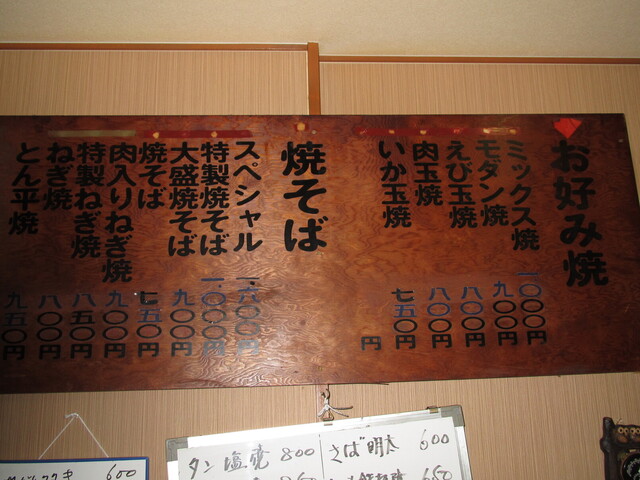 お好み焼
ミックス焼 一〇〇〇円
モダン焼 九〇〇円
えび玉焼 八〇〇円
肉玉焼 八〇〇円
いか玉焼 七五〇円
円
焼そば
スペシャル 一、六〇〇円
特製焼そば 一、〇〇〇円
大盛焼そば 九〇〇円
焼そば 七五〇円
肉入りねぎ焼 九〇〇円
特製ねぎ焼 八五〇円
ねぎ焼 八〇〇円
とん平焼 九五〇円
タン塩焼 800
さば明太 600
650
600